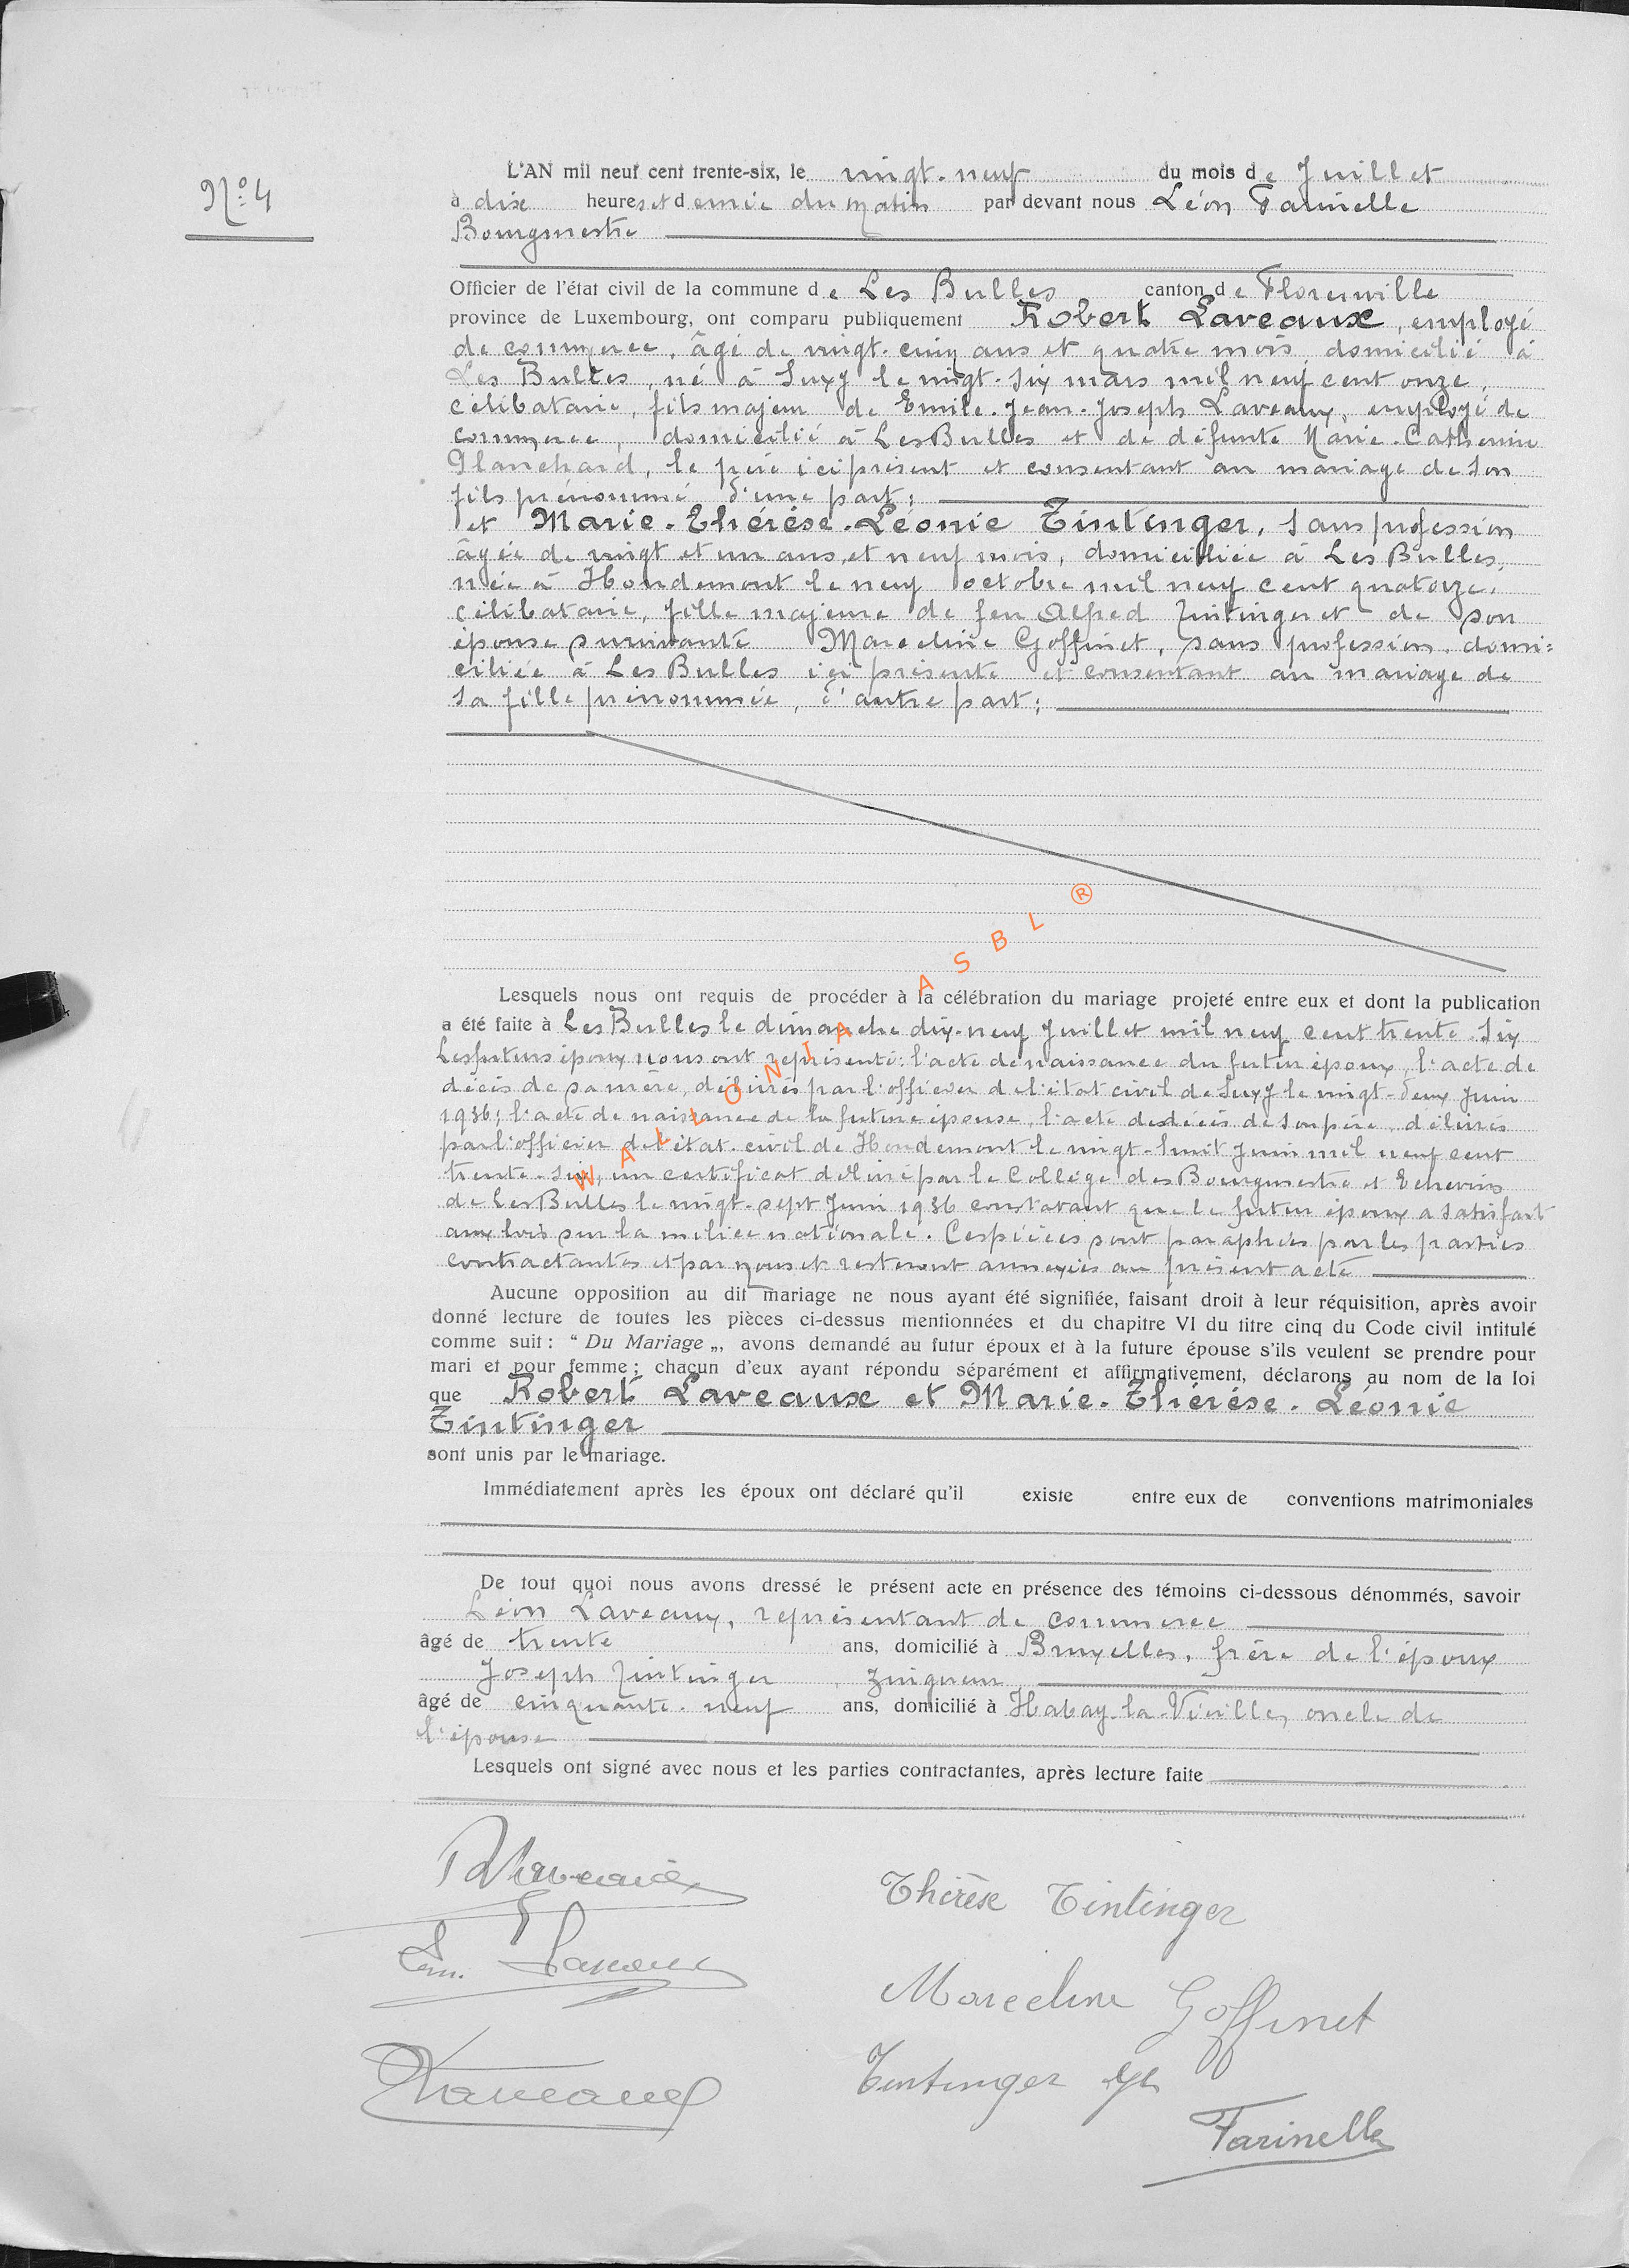 N° 4
L'AN mil neuf cent trente-six, le vingt-neuf du mois de Juillet
à dix heures et demie du matin par devant nous Léon Farinelle
Bourgmestre
Officier de l'état civil de la commune de Les Bulles canton de Florenville
province de Luxembourg, ont comparu publiquement Robert Laveaux, employé
de commerce, âgé de vingt-cinq ans et quatre mois, domicilié à
Les Bulles, né à Suxy le vingt-six mars mil neuf cent onze,
célibataire, fils majeur de Emile-Jean-Joseph Laveaux, employé de
commerce, domicilié à Les Bulles et de défunte Marie-Catherine
Planchard, le père ici présent et consentant au mariage de son
fils prénommé d'une part;
et Marie-Thérèse-Léonie Tintinger, sans profession
âgée de vingt et un ans, et neuf mois, domiciliée à Les Bulles,
née à Houdemont le neuf octobre mil neuf cent quatorze,
célibataire, fille majeure de feu Alfred Tintinger et de son
épouse survivante Marceline Goffinet, sans profession, domi=
ciliée à Les Bulles ici présente et consentant au mariage de
sa fille prénommée, d'autre part;
Lesquels nous ont requis de procéder à la célébration du mariage projeté entre eux et dont la publication
a été faite à Les Bulles le dimanche dix-neuf Juillet mil neuf cent trente-six
Les futurs époux nous ont représenté: l'acte de naissance du futur époux, l'acte de
décès de sa mère, délivrés par l'officier de l'état civil de Suxy le vingt-deux Juin
1936; l'acte de naissance de la future épouse, l'acte de décès de son père, délivrés
par l'officier de l'état-civil de Houdemont le vingt-huit Juin mil neuf cent
trente-six; un certificat délivré par le Collège des Bourgmestre et Echevins
de Les Bulles le vingt-sept Juin 1936 constatant que le futur époux a satisfait
aux lois sur la milice nationale. Ces pièces sont paraphées par les parties
contractantes et par nous et resteront annexées au présent acte
Aucune opposition au dit mariage ne nous ayant été signifiée, faisant droit à leur réquisition, après avoir
donné lecture de toutes les pièces ci-dessus mentionnées et du chapitre VI du titre cinq du Code civil intitulé
comme suit : “ Du Mariage „, avons demandé au futur époux et à la future épouse s'ils veulent se prendre pour
mari et pour femme ; chacun d'eux ayant répondu séparément et affirmativement, déclarons au nom de la loi
que Robert Laveaux et Marie-Thérèse-Léonie
Tintinger
sont unis par le mariage.
Immédiatement après les époux ont déclaré qu'il existe entre eux de conventions matrimoniales
De tout quoi nous avons dressé le présent acte en présence des témoins ci-dessous dénommés, savoir
Léon Laveaux, représentant de commerce
âgé de trente ans, domicilié à Bruxelles, frère de l'époux
Joseph Tintinger, zingueur
âgé de cinquante-neuf ans, domicilié à Habay-la-Vieille, oncle de
l'épouse
Lesquels ont signé avec nous et les parties contractantes, après lecture faite
Laveaux
Thérèse Tintinger
Laveaux
Marceline Goffinet
Laveaux
Tintinger
Farinelle
WALLONIA ASBL ®